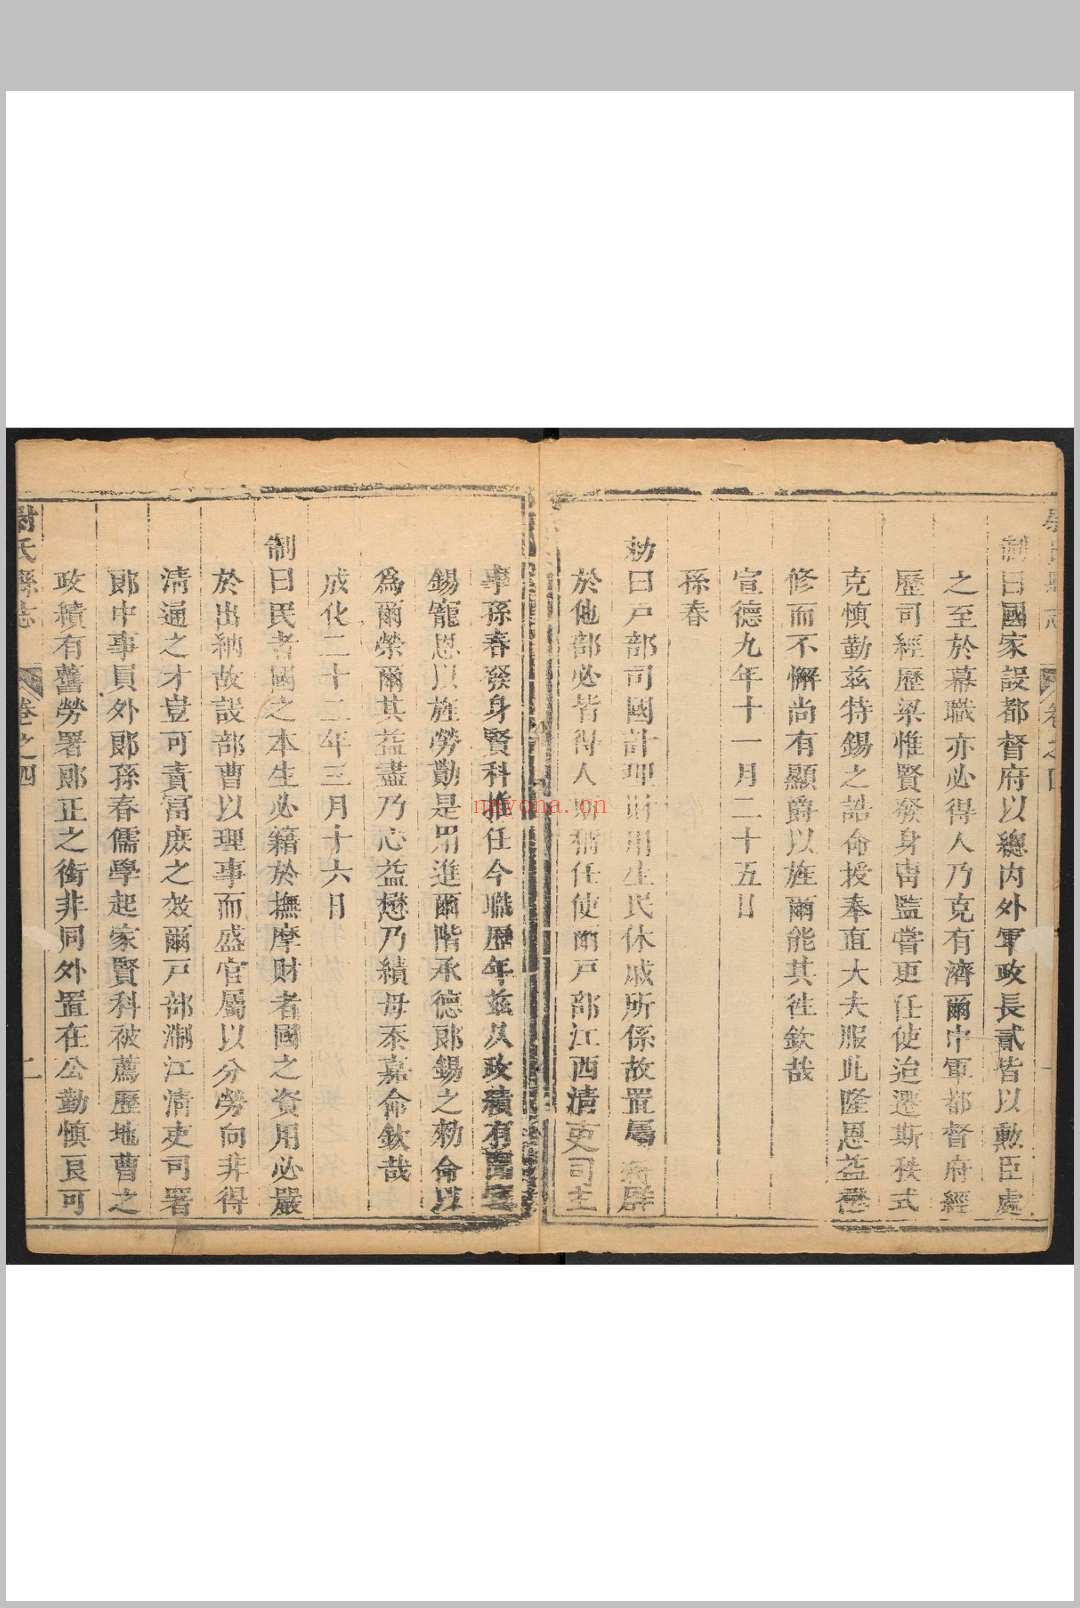 尉氏縣志 卷之四
制曰國家設都督府以總内外軍政長貳皆以勲臣處
之至於幕職亦必得人乃克有濟爾中軍都督府經
歷司經歷梁惟賢發身胄監嘗更任使迨遷斯秩式
克慎勤茲特錫之誥命授奉直大夫服此隆恩益懋
修而不懈尚有顯爵以旌爾能其徃欽哉
宣德九年十一月二十五日
孫春
勑曰戸部司國計理財用生民休戚所係故置屬 群
於他部必皆得人 稱任使爾戸部江西清吏司主
事孫春發身賢科推任今職歷年茲久政績有
錫寵恩以旌勞勩是用進爾階承德郎錫之勑命以
為爾榮爾其益盡乃心益懋乃績毋忝嘉命欽哉
成化二十二年三月十六日
制曰民者國之本生必籍於撫摩財者國之資用必嚴
於出納故設部曹以理事而盛官屬以分勞向非得
清通之才豈可責富庶之效爾戸部浙江清吏司署
郎中事員外郎孫春儒學起家賢科被薦歷地曹之
政績有舊勞署郎正之銜非同外置在公勤慎良可
尉氏縣志 卷之四 二
mryona.cn